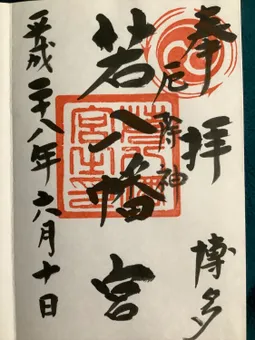 奉拝 博多
厄除神
若八幡宮
平成二十八年六月十日